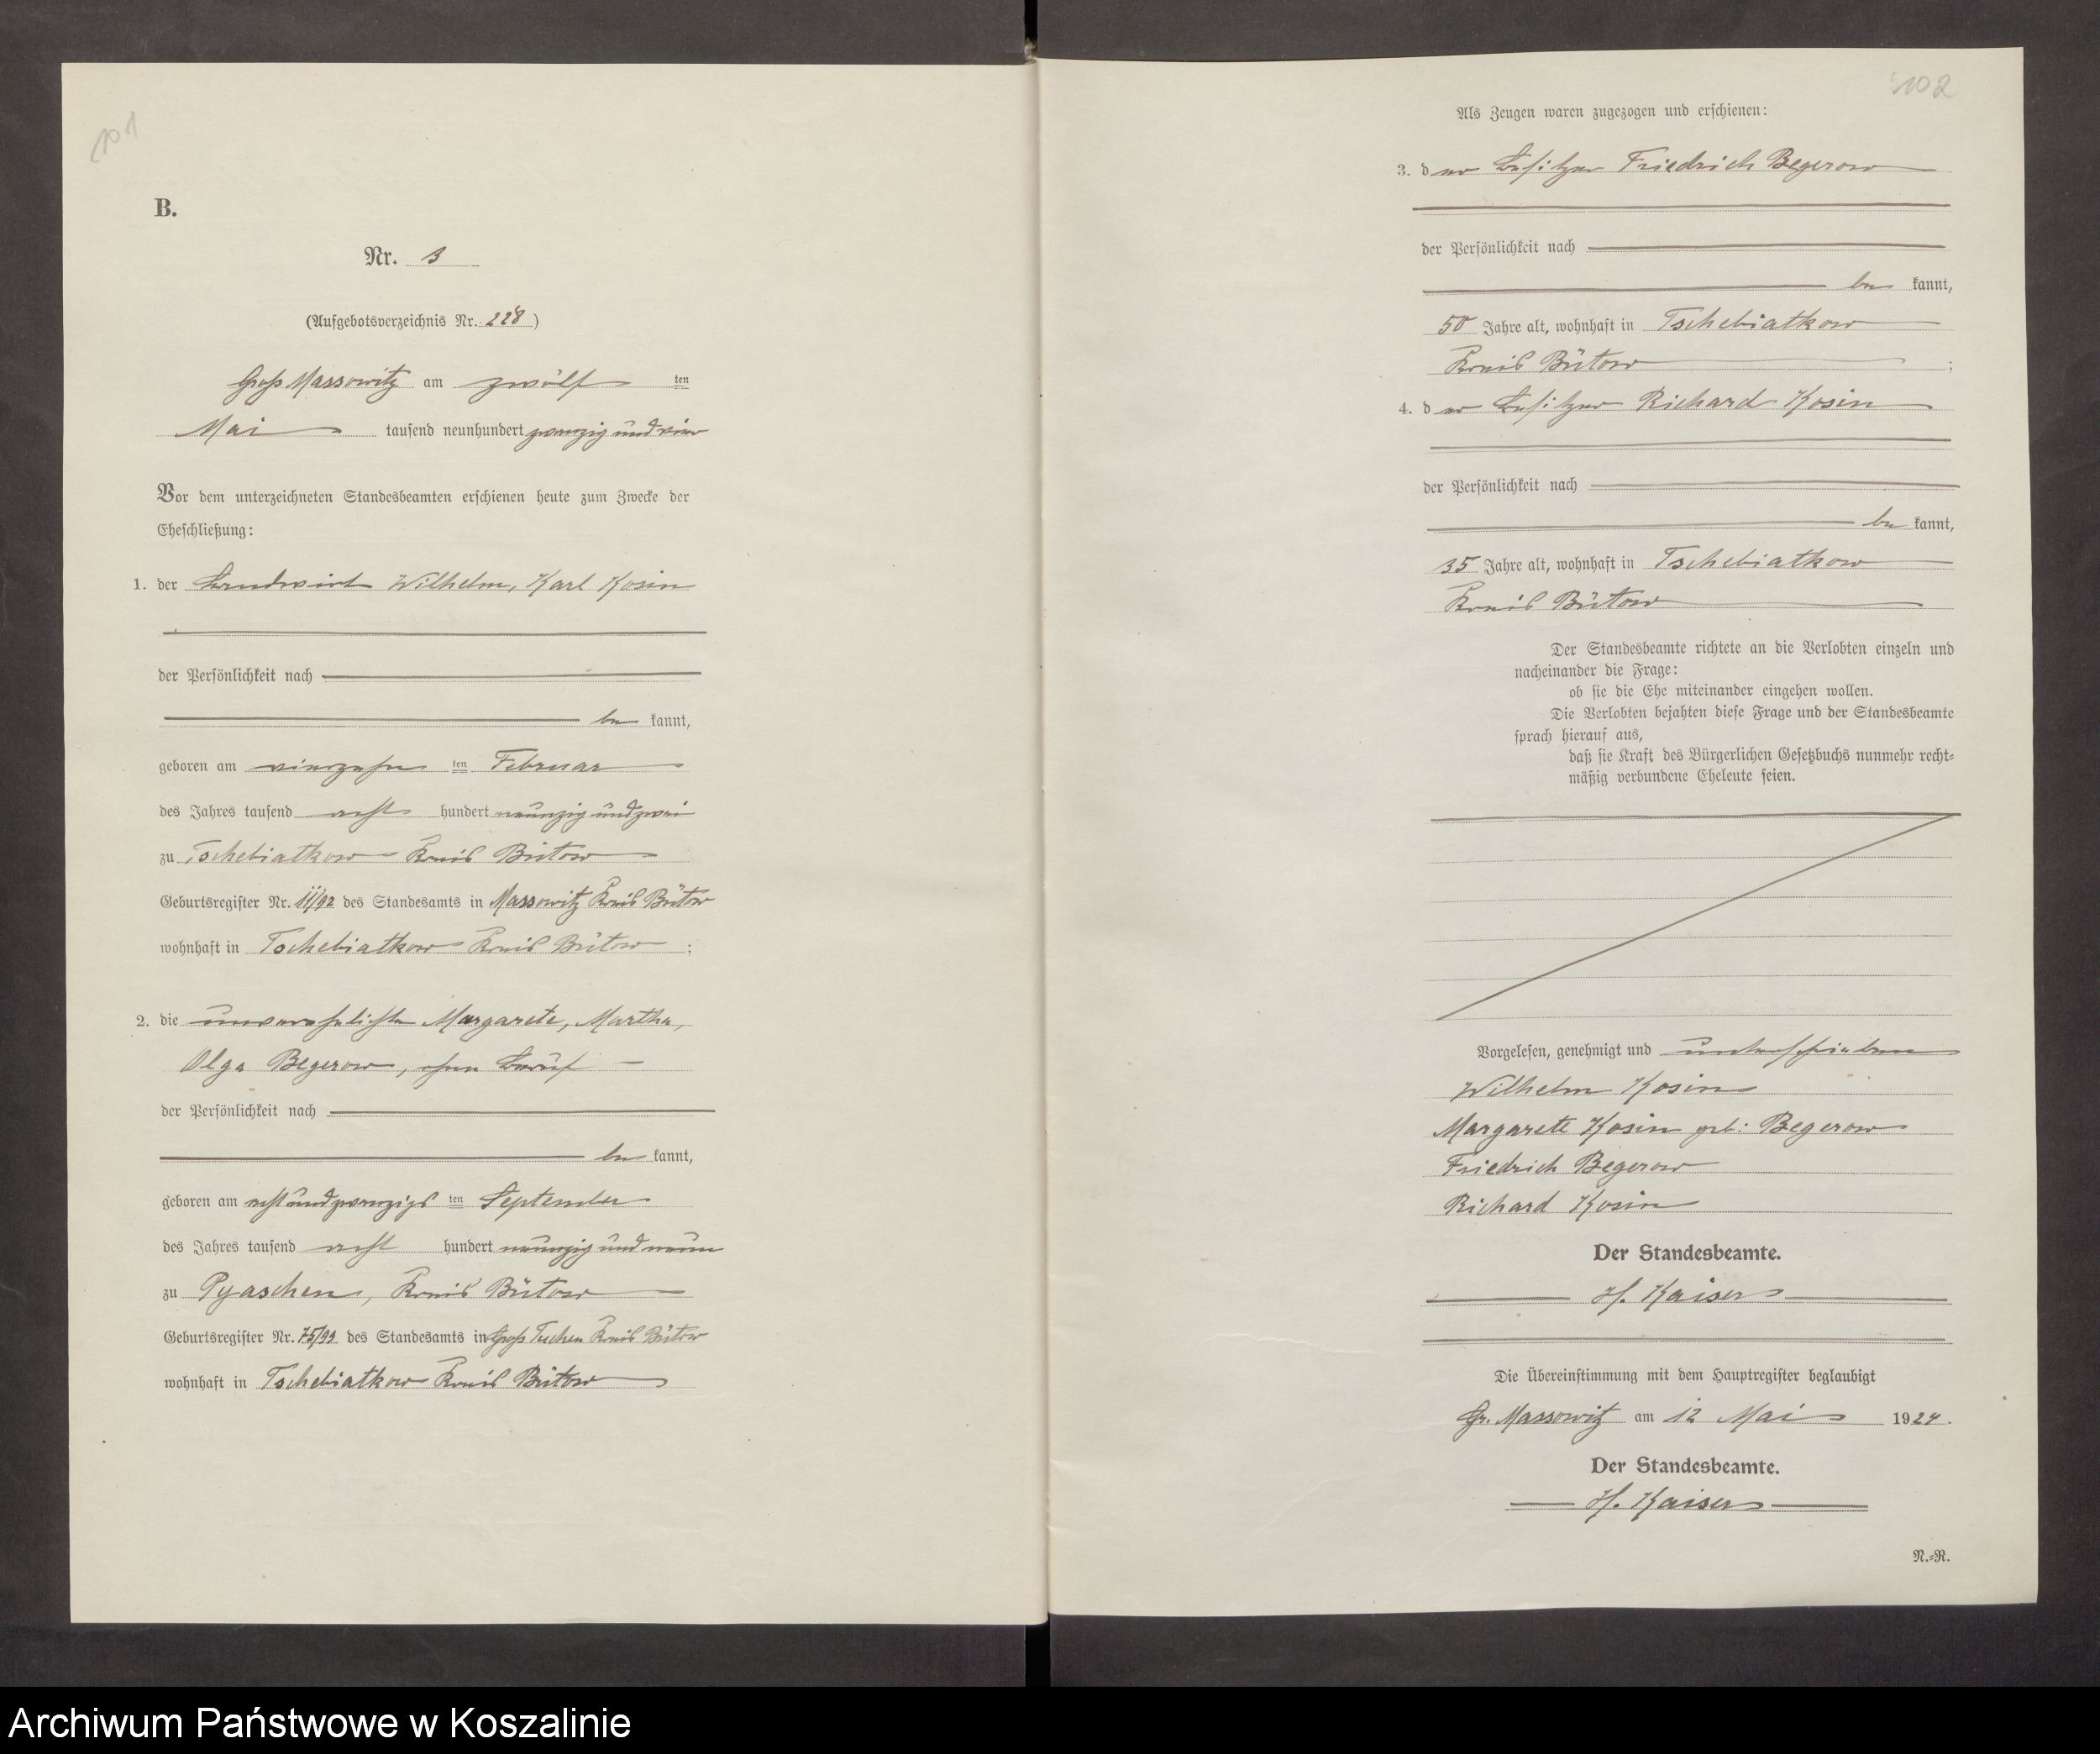 101
B.
Nr. 3
(Aufgebotsverzeichnis Nr. 228)
Groß Massowitz am zwölf ten
Mai tausend neunhundert zwanzig und vier
Vor dem unterzeichneten Standesbeamten erschienen heute zum Zwecke der
Eheschließung:
1. der Landwirt Wilhelm, Karl Kosin
der Persönlichkeit nach
be kannt,
geboren am vierzehn ten Februar
des Jahres tausend acht hundert neunzig und zwei
zu Tschebiatkow Kreis Bütow
Geburtsregister Nr. 11/92 des Standesamts in Massowitz Kreis Bütow
wohnhaft in Tschebiatkow Kreis Bütow ;
2. die unverehelichte Margarete, Martha,
Olga Begerow, ohne Beruf
der Persönlichkeit nach
be kannt,
geboren am achtundzwanzigs ten September
des Jahres tausend acht hundert neunzig und neun
zu Pyaschen, Kreis Bütow
Geburtsregister Nr. 75/99 des Standesamts in Groß Tuchen Kreis Bütow
wohnhaft in Tschebiatkow Kreis Bütow
102
Als Zeugen waren zugezogen und erschienen:
3. der Besitzer Friedrich Begerow
der Persönlichkeit nach
be kannt,
50 Jahre alt, wohnhaft in Tschebiatkow
Kreis Bütow ;
4. der Besitzer Richard Kosin
der Persönlichkeit nach
be kannt,
35 Jahre alt, wohnhaft in Tschebiatkow
Kreis Bütow
Der Standesbeamte richtete an die Verlobten einzeln und
nacheinander die Frage:
ob sie die Ehe miteinander eingehen wollen.
Die Verlobten bejahten diese Frage und der Standesbeamte
sprach hierauf aus,
daß sie Kraft des Bürgerlichen Gesetzbuchs nunmehr recht-
mäßig verbundene Eheleute seien.
Vorgelesen, genehmigt und unterschrieben
Wilhelm Kosin
Margarete Kosin geb. Begerow
Friedrich Begerow
Richard Kosin
Der Standesbeamte.
H. Kaiser
Die Übereinstimmung mit dem Hauptregister beglaubigt
Gr. Massowitz am 12 Mai 1924.
Der Standesbeamte.
H. Kaiser
N.-R.
Archiwum Państwowe w Koszalinie